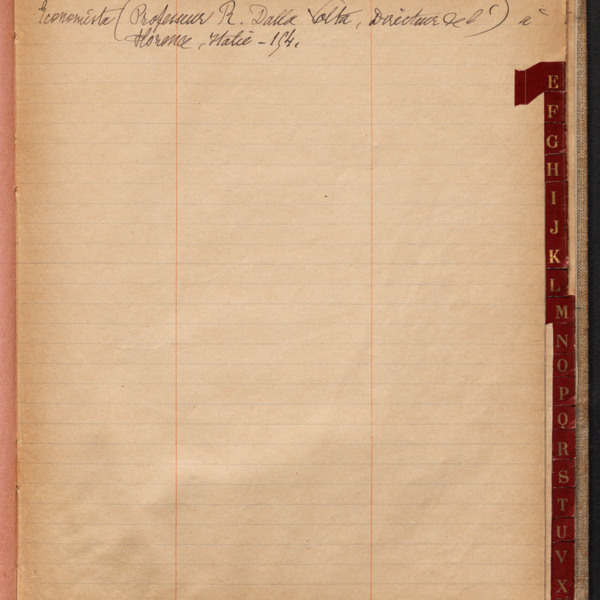 Economista (Professeur R. Dalla Volta, Directeur de l') à
Florence, Italie - 154.
E
F
G
H
I
J
K
L
M
N
O
P
Q
R
S
T
U
V
X